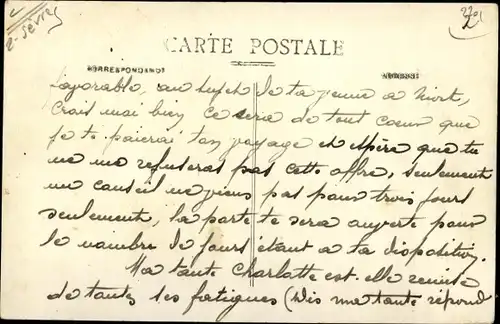 2-Sèvres
CARTE POSTALE
CORRESPONDANCE
ADRESSE
favorable, au sujet de ta venue a Niort,
Crois moi bien ce sera de tout coeur que
je te paierai ton voyage et espère que tu
ne me refuseras pas cette offre, seulement
un conseil ne viens pas pour trois jours
seulement, la porte te sera ouverte pour
le nombre de jours étant a ta disposition.
Ma tante Charlotte est-elle remise
de toutes ses fatigues (Dis ma tante répond